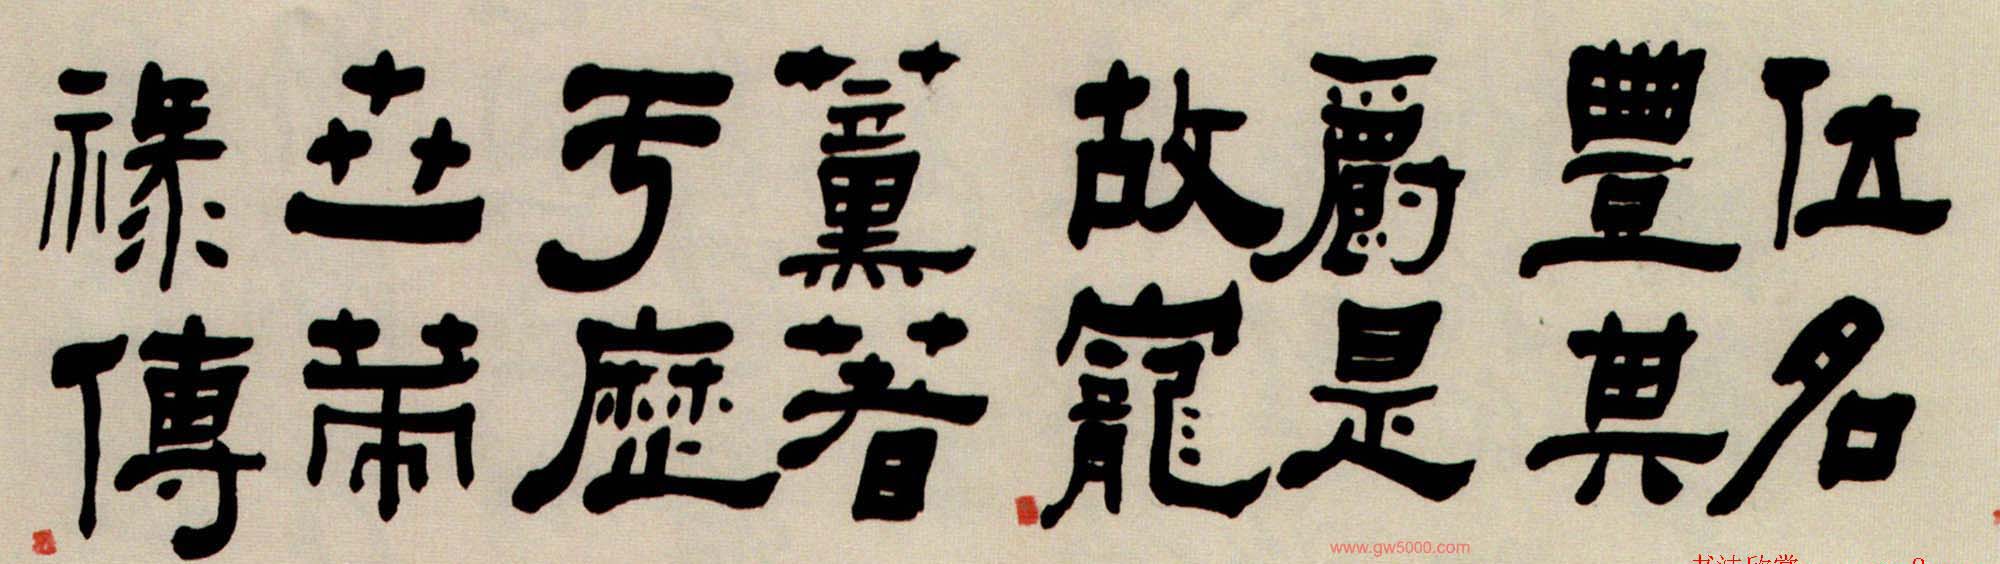 位名
豐其
爵是
故寵
薰著
于歷
世策
祿傳
www.gw5000.com
书法欣赏